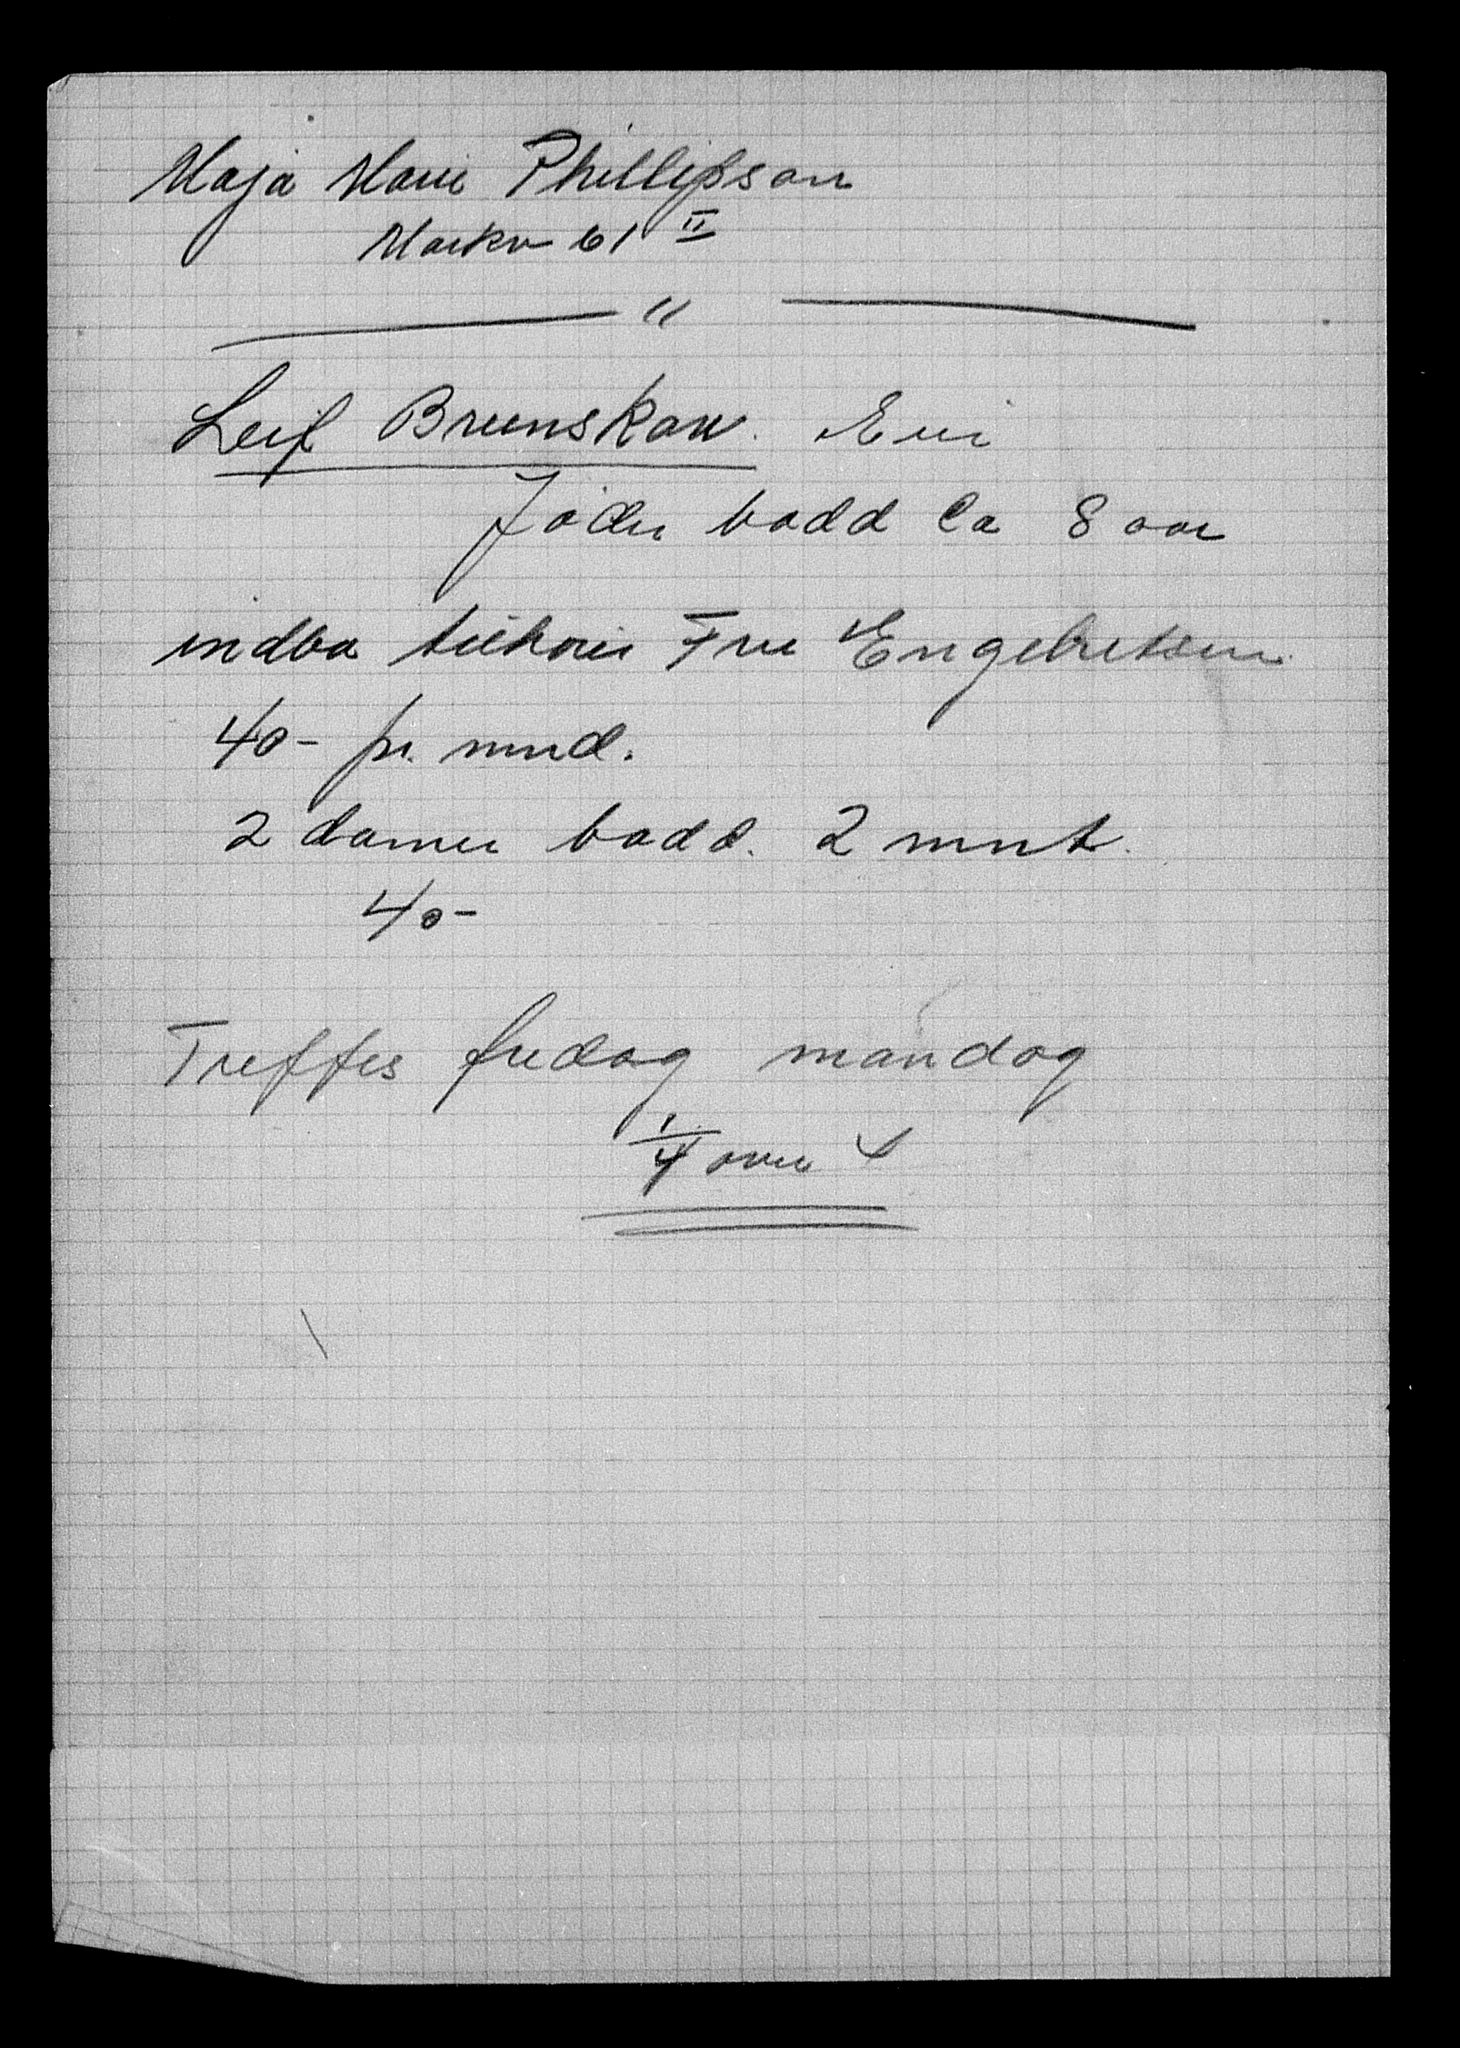 Maja Marie Phillipson
Markv 61 II
"
Leif Brunskow. Eier
Jöder bodd ca 8 aar
indbo tilhører Fru Engebretsen
40- pr. mnd.
2 damer bodd. 2 mnt.
40-
Treffes fredag mandag
1/4 over 4